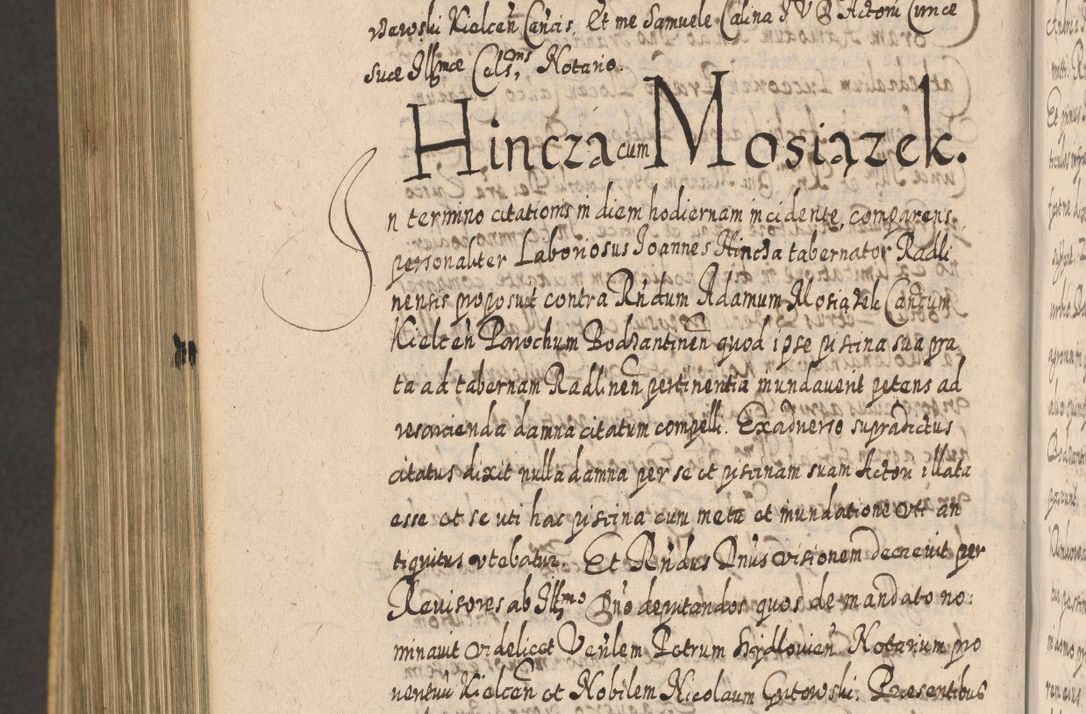 rzewski Kielcen̄ Cancis, Et me Samuele Calina J V D Actorū Curiæ
suæ Illmæ Celsnis, Notario.
Hincza cum Mosiązek.
In termino citationis in diem hodiernam incidente, comparens
personaliter Laboriosus Joannes Hincza tabernator Radli
nensis proposuit contra Rndum Adamum Mosiązek Cancum
Kielcen̄ Parochum Bodzantinen̄ quod ipse piscina sua pra
ta ad tabernam Radlinen̄ pertinentia inundaverit petens ad
resarcienda damna citatum compelli. Ex adverso supradictus
citatus dixit nulla damna per se et piscinam suam Actori illata
esse et se uti hac piscina cum meta et inundatione vtt an
tiquitus vtebatur. Et Rndus Dnus visionem decrevit per
Revisores ab Illmo Dno deputandos quos de mandato no:
minavit videlicet Venlem Petrum Szydlowien̄ Notarium pro
ventuū Kielcen̄ et Nobilem Nicolaum Gutowski: Præsentibus